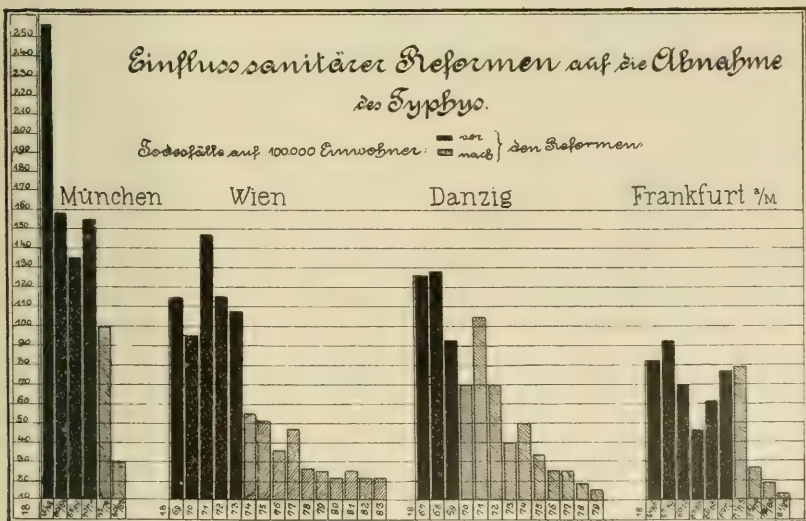 Einfluss sanitärer Reformen auf die Abnahme
des Typhus.
Todesfälle auf 100.000 Einwohner: vor
nach } den Reformen.
München Wien Danzig Frankfurt a/M
250
240
230
220
210
200
190
180
170
160
150
140
130
120
110
100
90
80
70
60
50
40
30
20
10
18
18 69 70 71 72 73 74 75 76 77 78 79 80 81 82 83
18 67 68 69 70 71 72 73 74 75 76 77 78 79
18